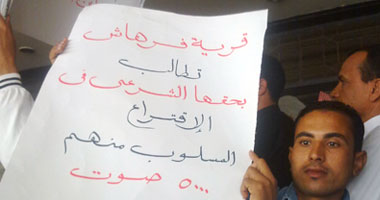 قرية فرهاش
تطالب
بحقها الشرعى فى
الإقتراع
المسلوب منهم
٥٠٠٠ صوت